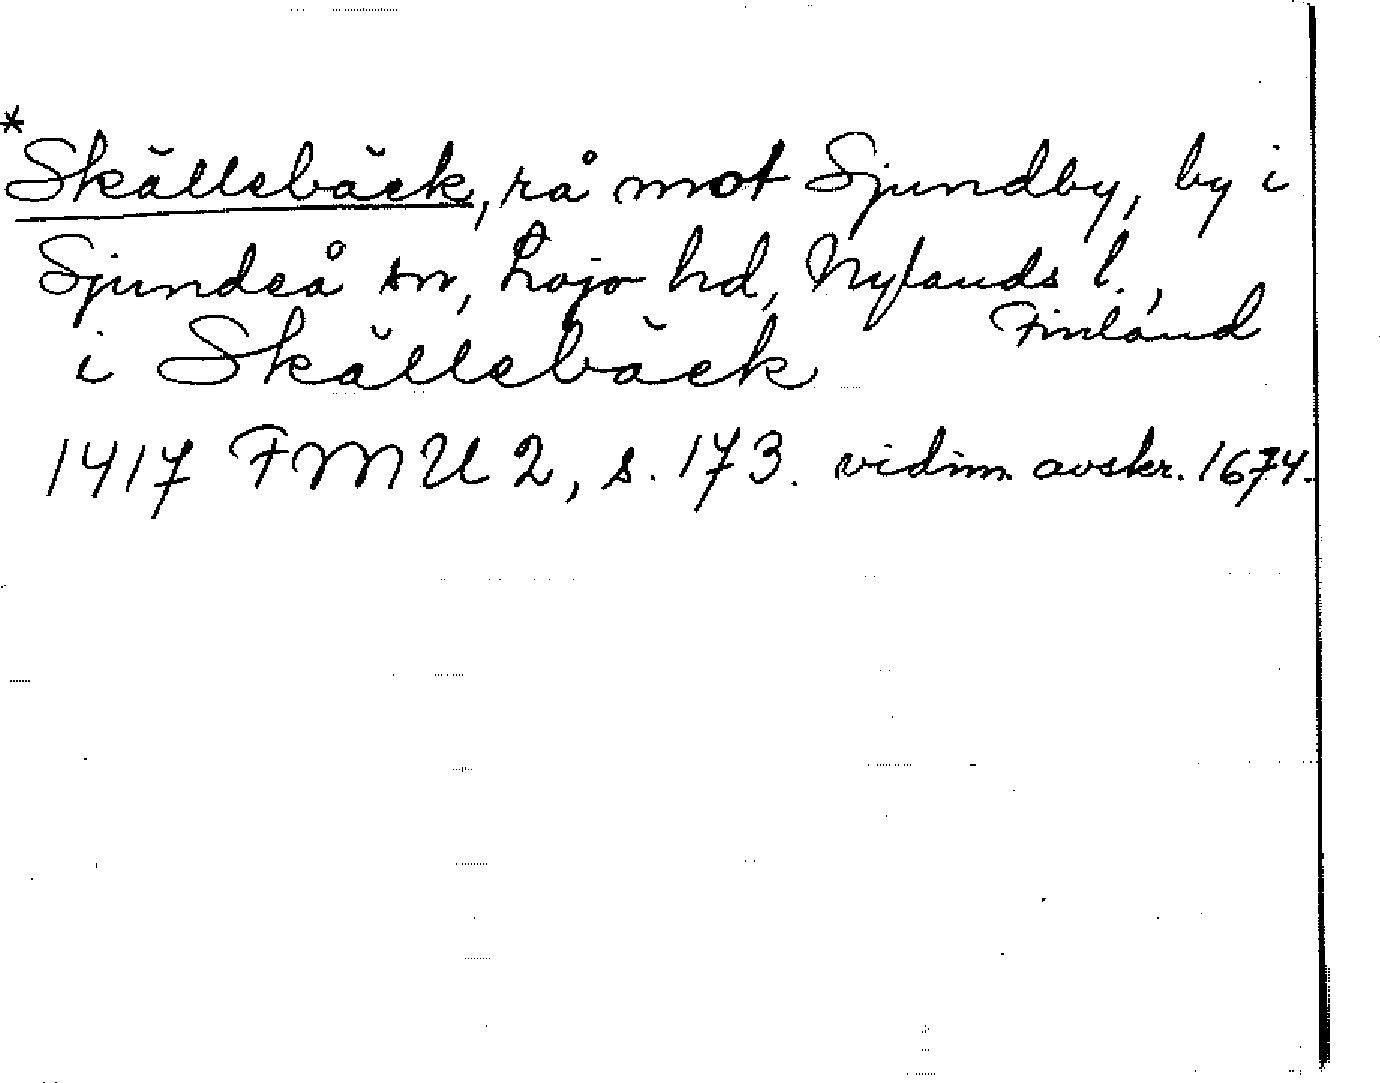 *Skällebäck, rå mot Sjundby, by i
Sjundeå sn, Lojo hd, Nylands l.,
Finland
i Skällebäck
1417 FMU 2, s. 173. vidim. avskr. 1674.